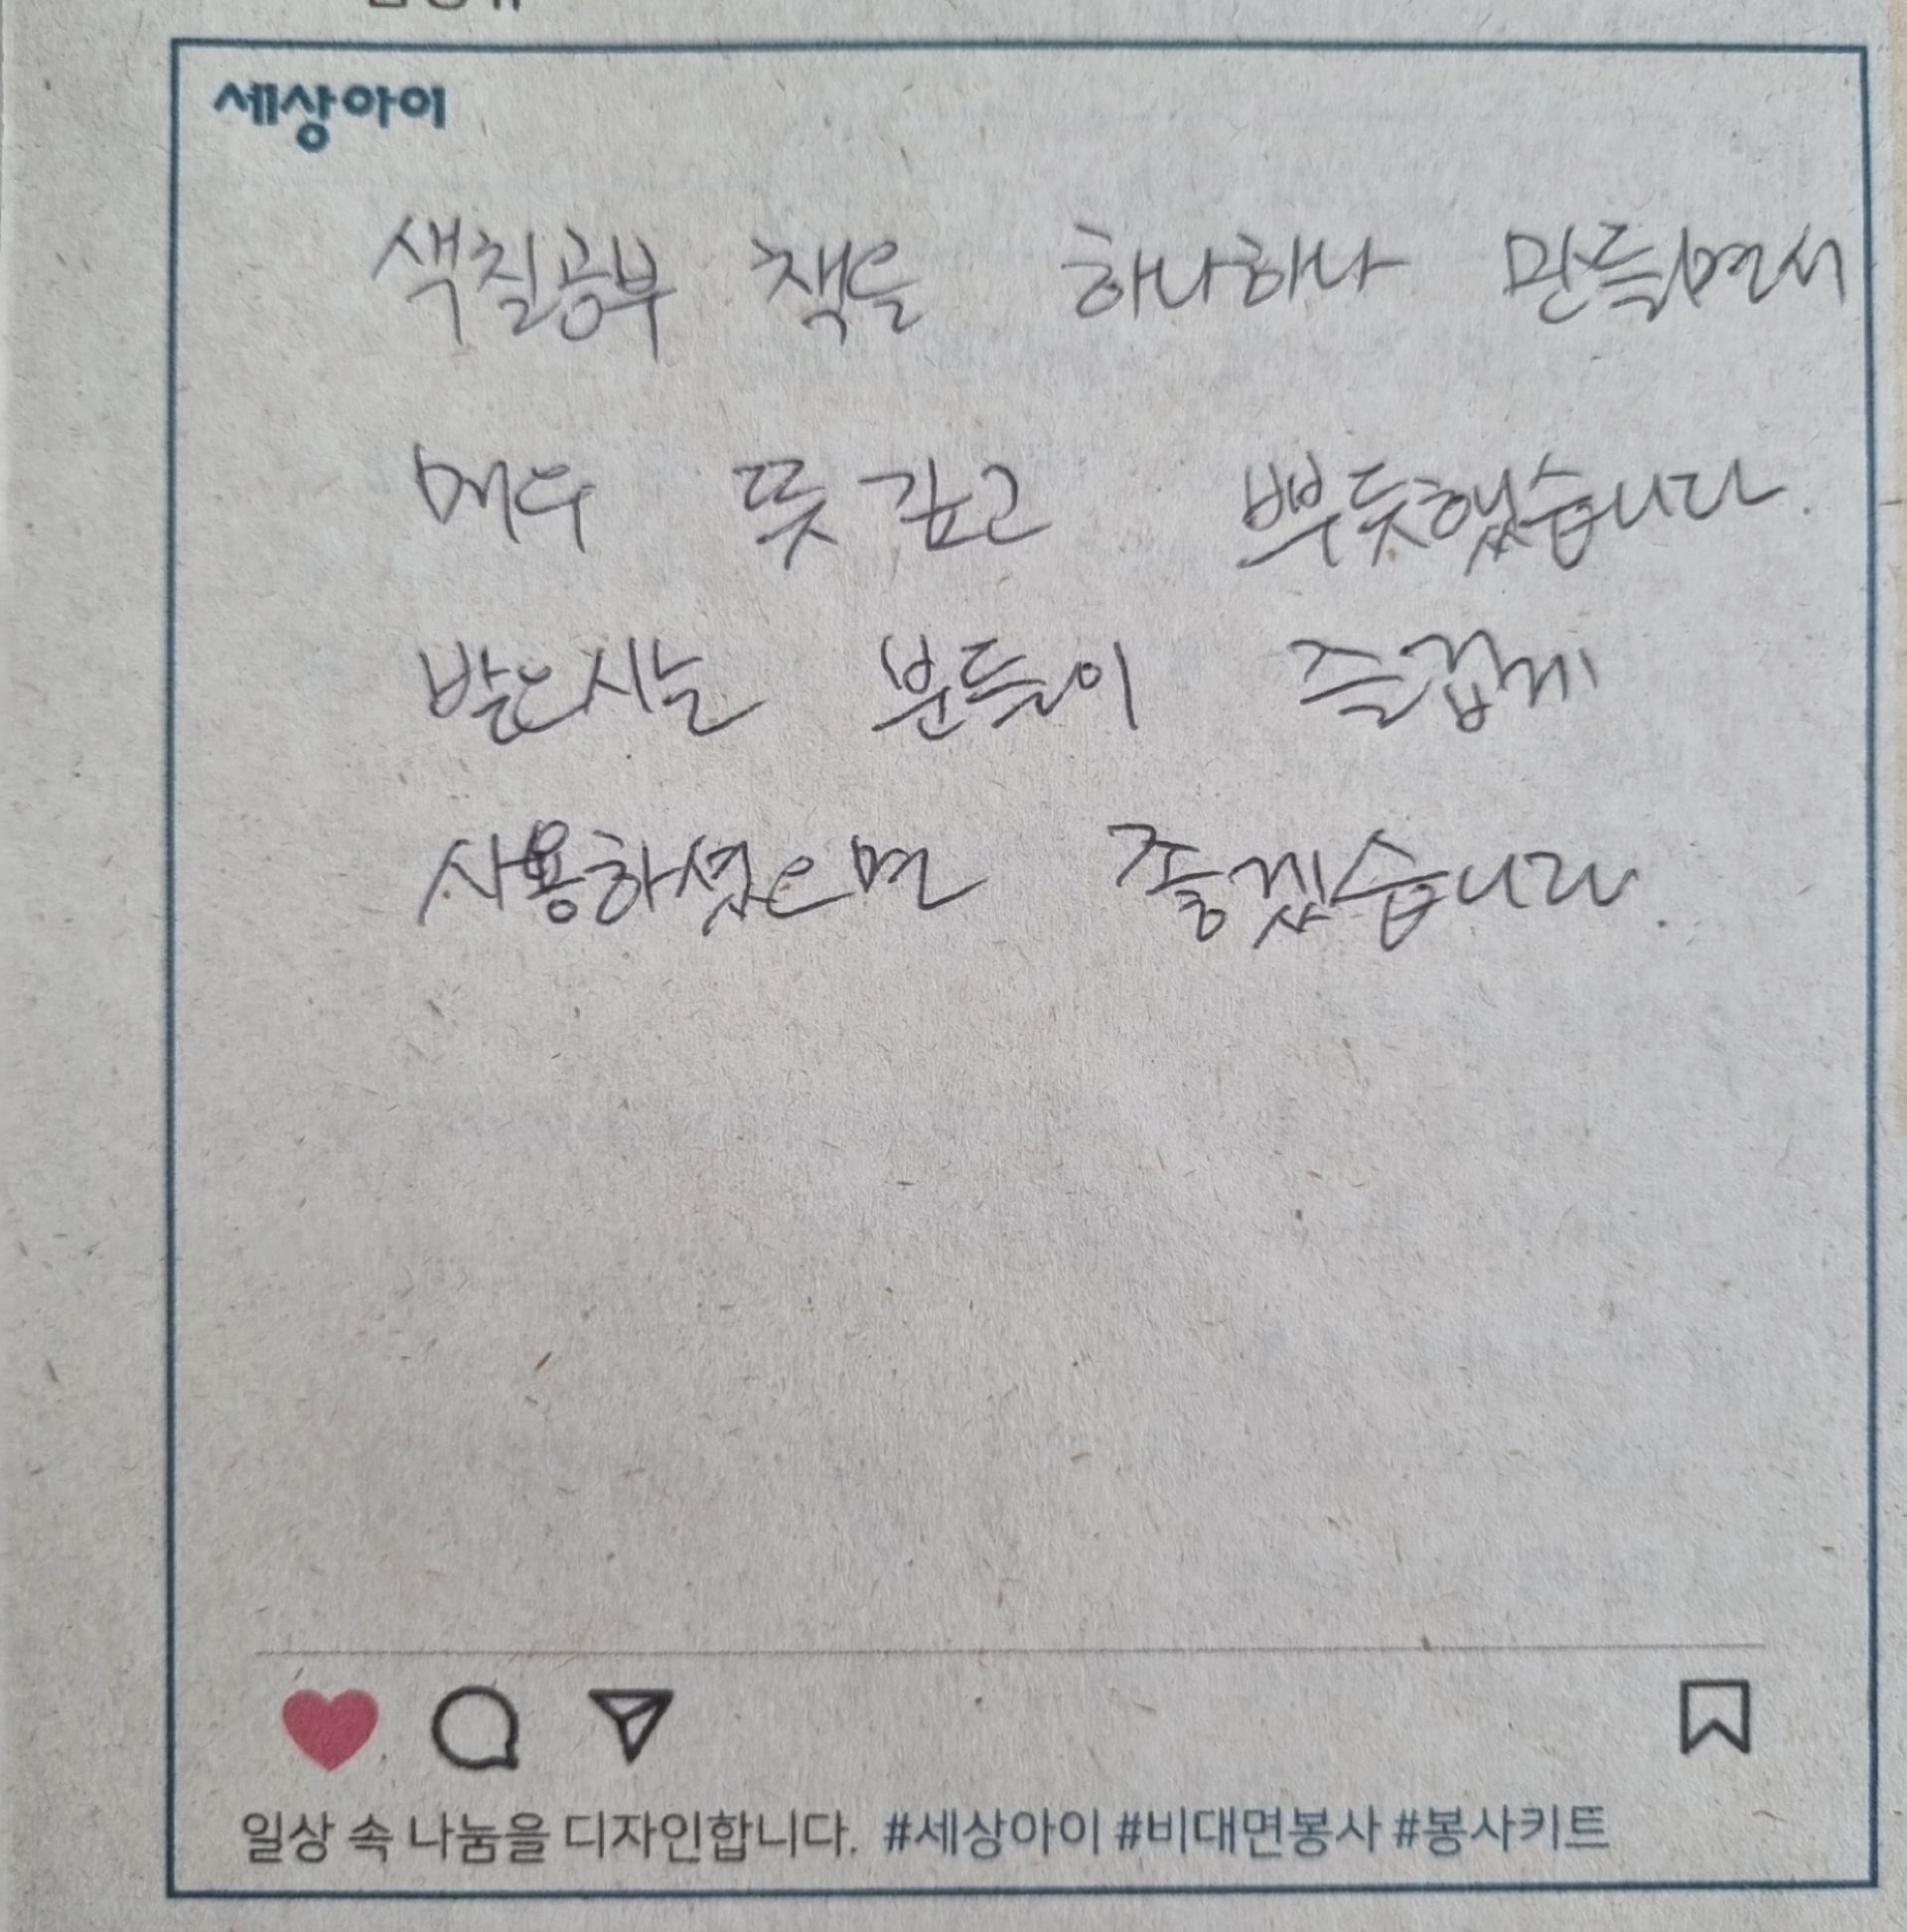 세상아이
색칠공부 책을 하나하나 만들면서
매우 뜻 깊고 뿌듯했습니다.
받으시는 분들이 즐겁게
사용하셨으면 좋겠습니다.
일상 속 나눔을 디자인합니다. #세상아이 #비대면봉사 #봉사키트